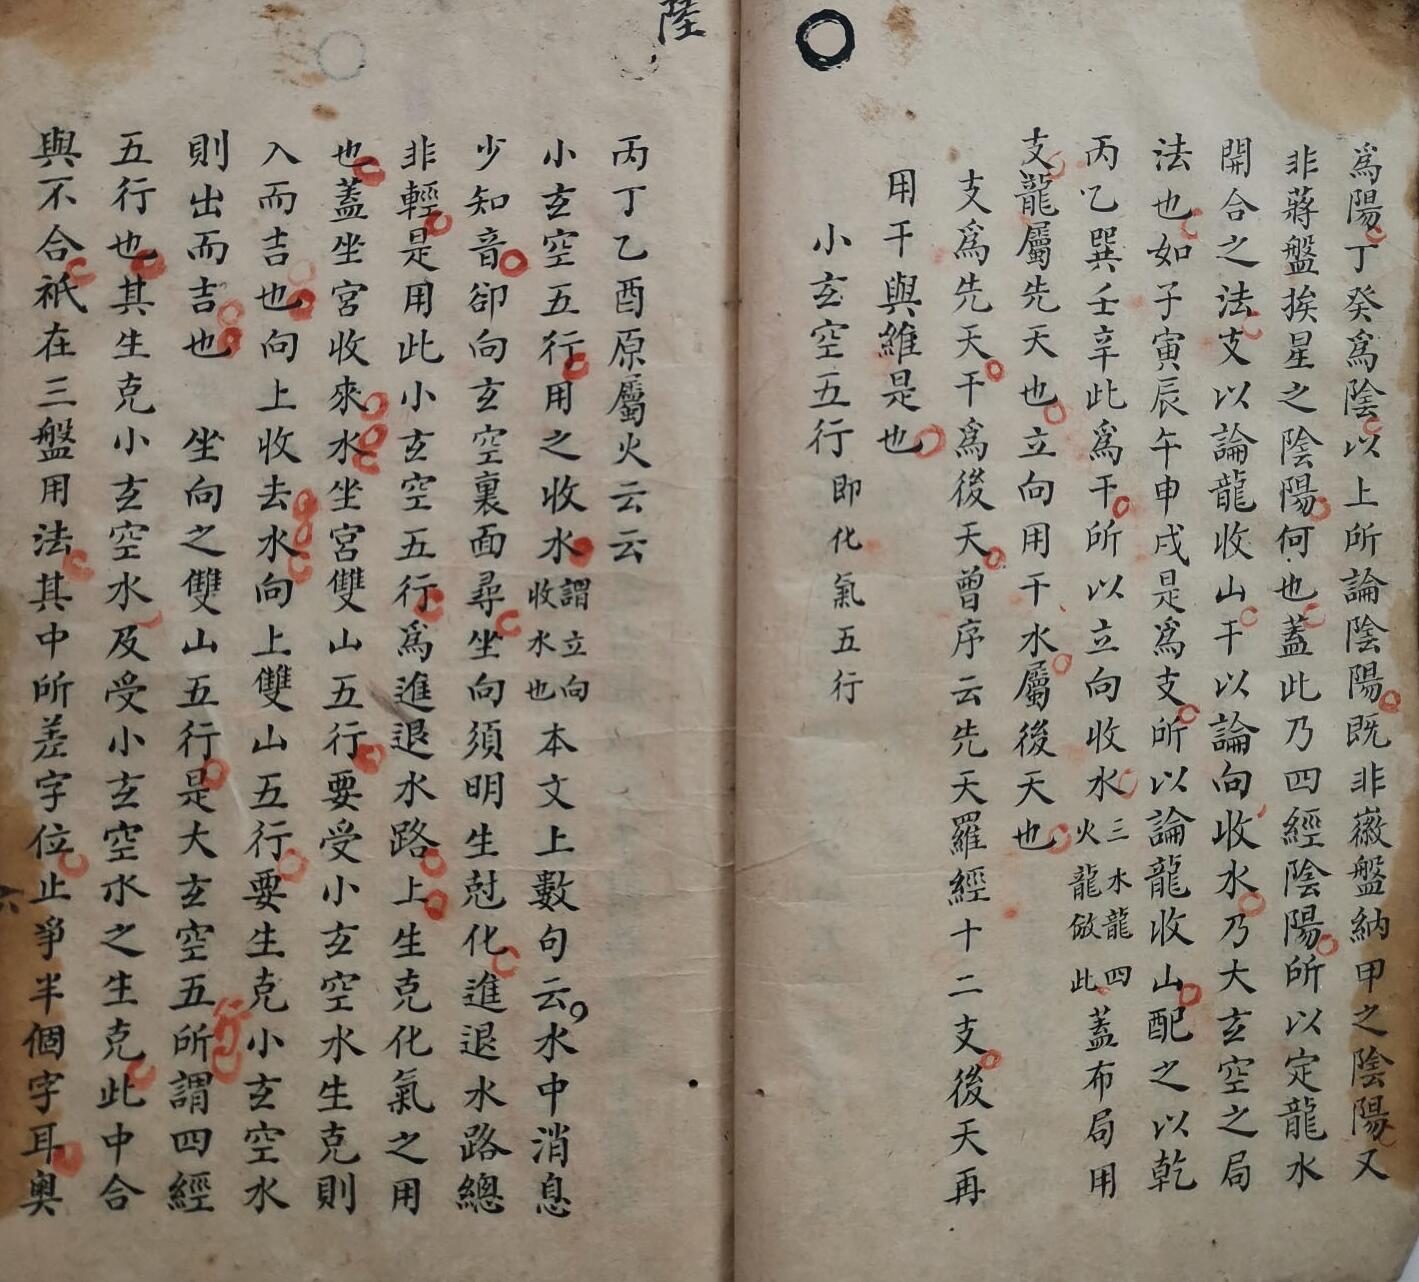 爲陽丁癸爲陰以上所論陰陽既非徽盤納甲之陰陽又
非蔣盤挨星之陰陽何也蓋此乃四經陰陽所以定龍水
開合之法支以論龍收山干以論向收水乃大玄空之局
法也如子寅辰午申戌是爲支所以論龍收山配之以乾
丙乙巽壬辛此爲干所以立向收水三水龍四火龍倣此蓋布局用
支龍屬先天也立向用干水屬後天也
支爲先天干爲後天曾序云先天羅經十二支後天再
用干與維是也
小玄空五行即化氣五行
陸
丙丁乙酉原屬火云云
小玄空五行用之收水謂立向收水也本文上數句云水中消息
少知音卻向玄空裏面尋坐向須明生尅化進退水路總
非輕是用此小玄空五行爲進退水路上生克化氣之用
也蓋坐宮收來水坐宮雙山五行要受小玄空水生克則
入而吉也向上收去水向上雙山五行要生克小玄空水
則出而吉也 坐向之雙山五行是大玄空五行所謂四經
五行也其生克小玄空水及受小玄空水之生克此中合
與不合祇在三盤用法其中所差字位止爭半個字耳奧
六